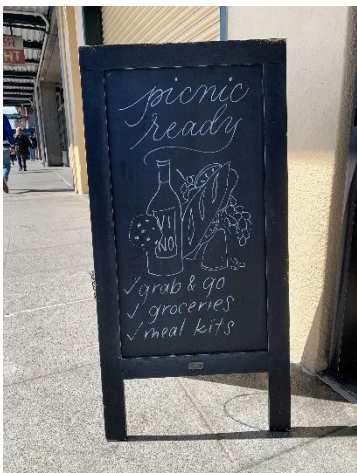 picnic
ready
VI
NO
✓grab & go
✓ groceries
✓meal kits